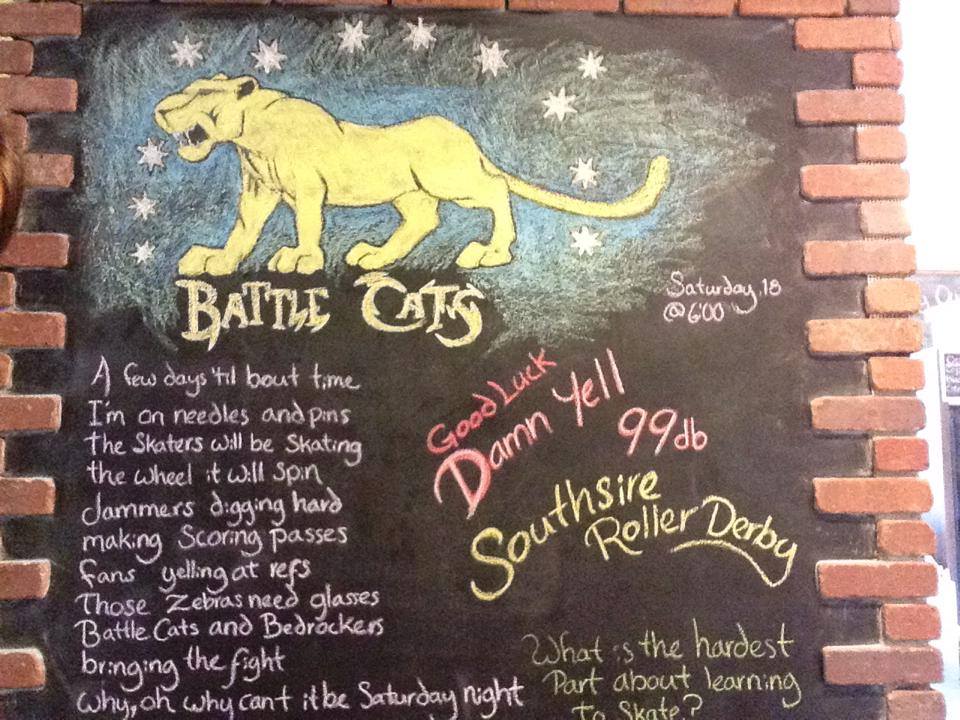 BATTLE CATS
Saturday, 18
@ 6:00
A few days 'til bout time
I'm on needles and pins
the Skaters will be Skating
the wheel it will spin
Jammers digging hard
making Scoring passes
fans yelling at refs
Those Zebras need glasses
Battle Cats and Bedrockers
bringing the fight
Why, oh why can't it be Saturday night
Good Luck
Damn Yell
99db
Southsire
Roller Derby
What is the hardest
Part about learning
To Skate?